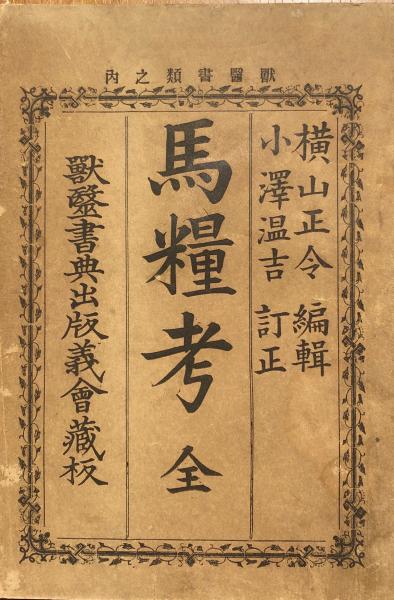 獸醫書類之内
横山正令 編輯
小澤温吉 訂正
馬糧考 全
獸毉書典出版義會藏板